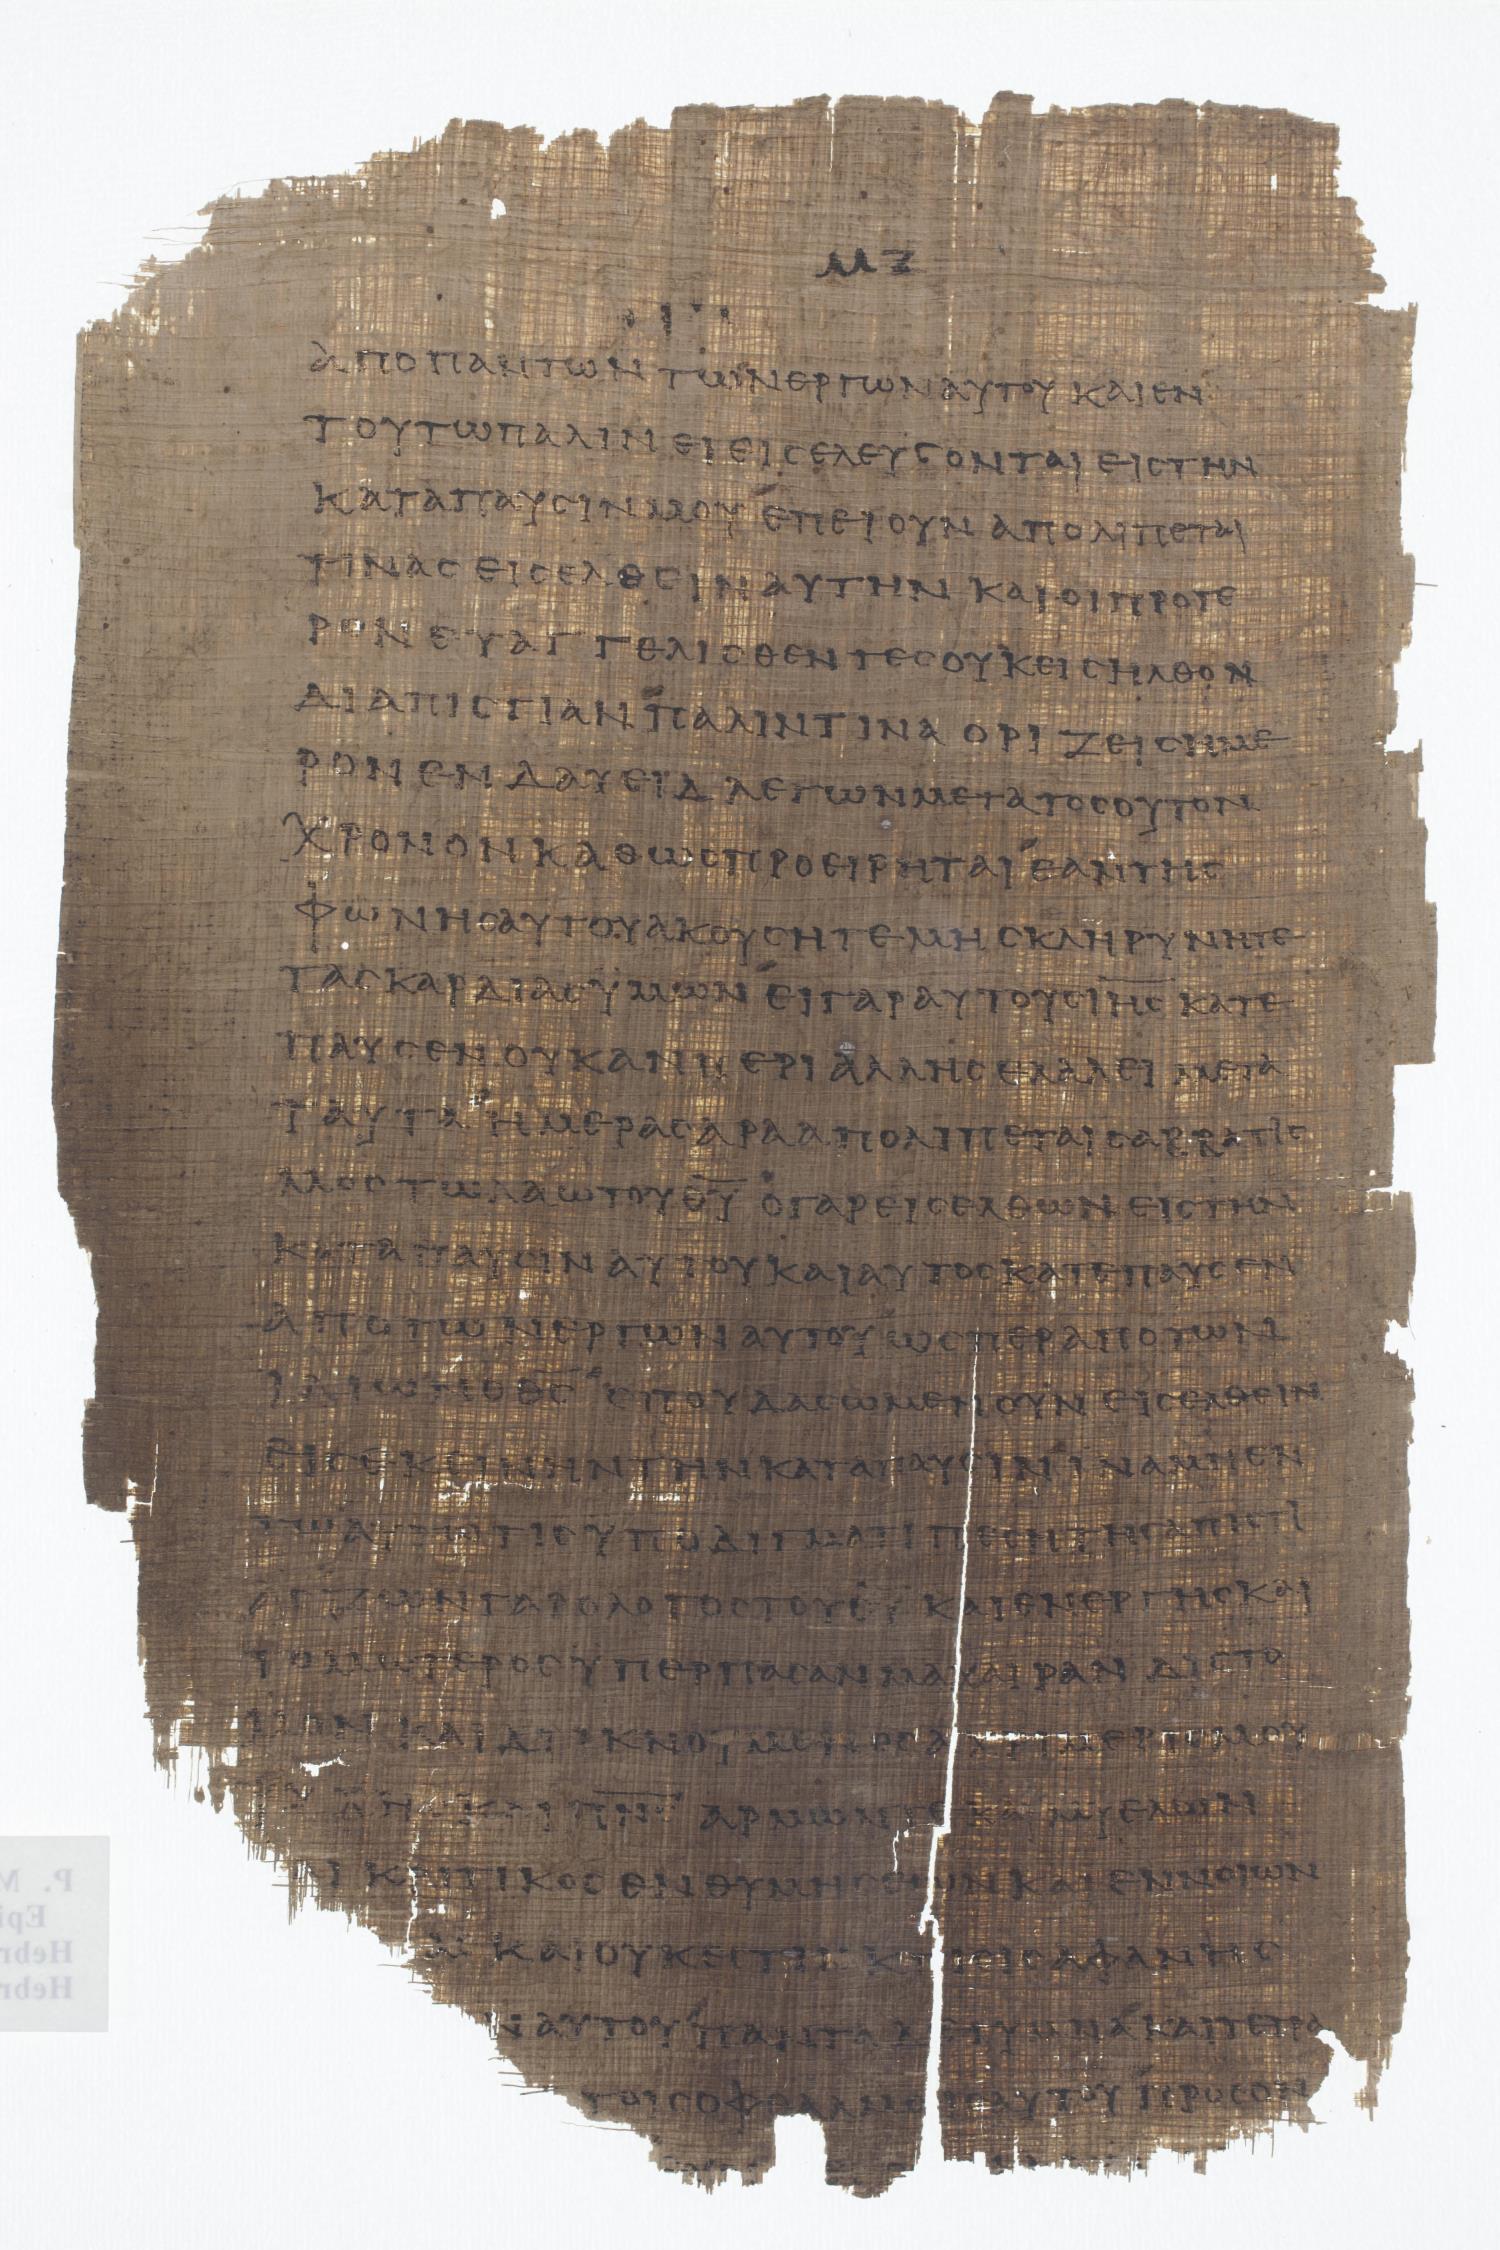 ΜΖ
ΑΠΟΠΑΝΤΩΝ ΤΩΝΕΡΓΩΝΑΥΤΟΥ ΚΑΙΕΝ
ΤΟΥΤΩΠΑΛΙΝ ΕΙΕΙϹΕΛΕΥϹΟΝΤΑΙ ΕΙϹΤΗΝ
ΚΑΤΑΠΑΥϹΙΝΜΟΥ ΕΠΕΙΟΥΝ ΑΠΟΛΙΠΕΤΑΙ
ΤΙΝΑϹ ΕΙϹΕΛΘΕΙΝΑΥΤΗΝ ΚΑΙΟΙΠΡΟΤΕ
ΡΟΝΕΥΑΓΓΕΛΙϹΘΕΝΤΕϹΟΥΚΕΙϹΗΛΘΟΝ
ΔΙΑΠΙϹΤΙΑΝ ΠΑΛΙΝΤΙΝΑ ΟΡΙΖΕΙϹΗΜΕ
ΡΟΝΕΝΔΑΥΕΙΔ ΛΕΓΩΝΜΕΤΑΤΟϹΟΥΤΟΝ
ΧΡΟΝΟΝΚΑΘΩϹΠΡΟΕΙΡΗΤΑΙ ΕΑΝΤΗϹ
ΦΩΝΗϹΑΥΤΟΥΑΚΟΥϹΗΤΕΜΗϹΚΛΗΡΥΝΗΤΕ
ΤΑϹΚΑΡΔΙΑϹΥΜΩΝ ΕΙΓΑΡΑΥΤΟΥϹΙΗ̅Ϲ̅ ΚΑΤΕ
ΠΑΥϹΕΝΟΥΚΑΝΠΕΡΙΑΛΛΗϹΕΛΑΛΕΙ ΜΕΤΑ
ΤΑΥΤΑ ΗΜΕΡΑϹΑΡΑΑΠΟΛΙΠΕΤΑΙϹΑΒΒΑΤΙϹ
ΜΟϹΤΩΛΑΩΤΟΥΘ̅Υ̅ ΟΓΑΡΕΙϹΕΛΘΩΝΕΙϹΤΗΝ
ΚΑΤΑΠΑΥϹΙΝΑΥΤΟΥΚΑΙΑΥΤΟϹΚΑΤΕΠΑΥϹΕΝ
ΑΠΟΤΩΝΕΡΓΩΝΑΥΤΟΥΩϹΠΕΡΑΠΟΤΩΝ
ΙΔΙΩΝΟΘ̅Ϲ̅ ϹΠΟΥΔΑϹΩΜΕΝΟΥΝ ΕΙϹΕΛΘΕΙΝ
ΕΙϹΕΚΕΙΝΗΝΤΗΝΚΑΤΑΠΑΥϹΙΝ ΙΝΑΜΗΕΝ
ΤΩΑΥΤΩΤΙϹΥΠΟΔΙΓΜΑΤΙΠΕϹΗΤΗϹΑΠΙϹΤΙ
ΑϹΖΩΝΓΑΡΟΛΟΓΟϹΤΟΥΘ̅Υ̅ ΚΑΙΕΝΕΡΓΗϹΚΑΙ
ΤΟΜΩΤΕΡΟϹΥΠΕΡΠΑϹΑΝΜΑΧΑΙΡΑΝ ΔΙϹΤΟ
ΜΟΝ ΚΑΙΔΙΙΚΝΟΥΜΕΝΟϹΑΧΡΙΜΕΡΙϹΜΟΥ
ΚΑΙΠΝ̅Ϲ̅ ΑΡΜΩΝΤΕΚΑΙΜΥΕΛΩΝ
Ι ΚΡΙΤΙΚΟϹ ΕΝΘΥΜΗϹΕΩΝΚΑΙΕΝΝΟΙΩΝ
ΚΑΙΟΥΚΕϹΤΙΝΚΤΙϹΙϹΑΦΑΝΗϹ
ΝΑΥΤΟΥ ΠΑΝΤΑΔΕΓΥΜΝΑΚΑΙΤΕΤΡΑ
ΤΟΙϹΟΦΘΑΛΜΟΙϹΑΥΤΟΥ ΠΡΟϹΟΝ